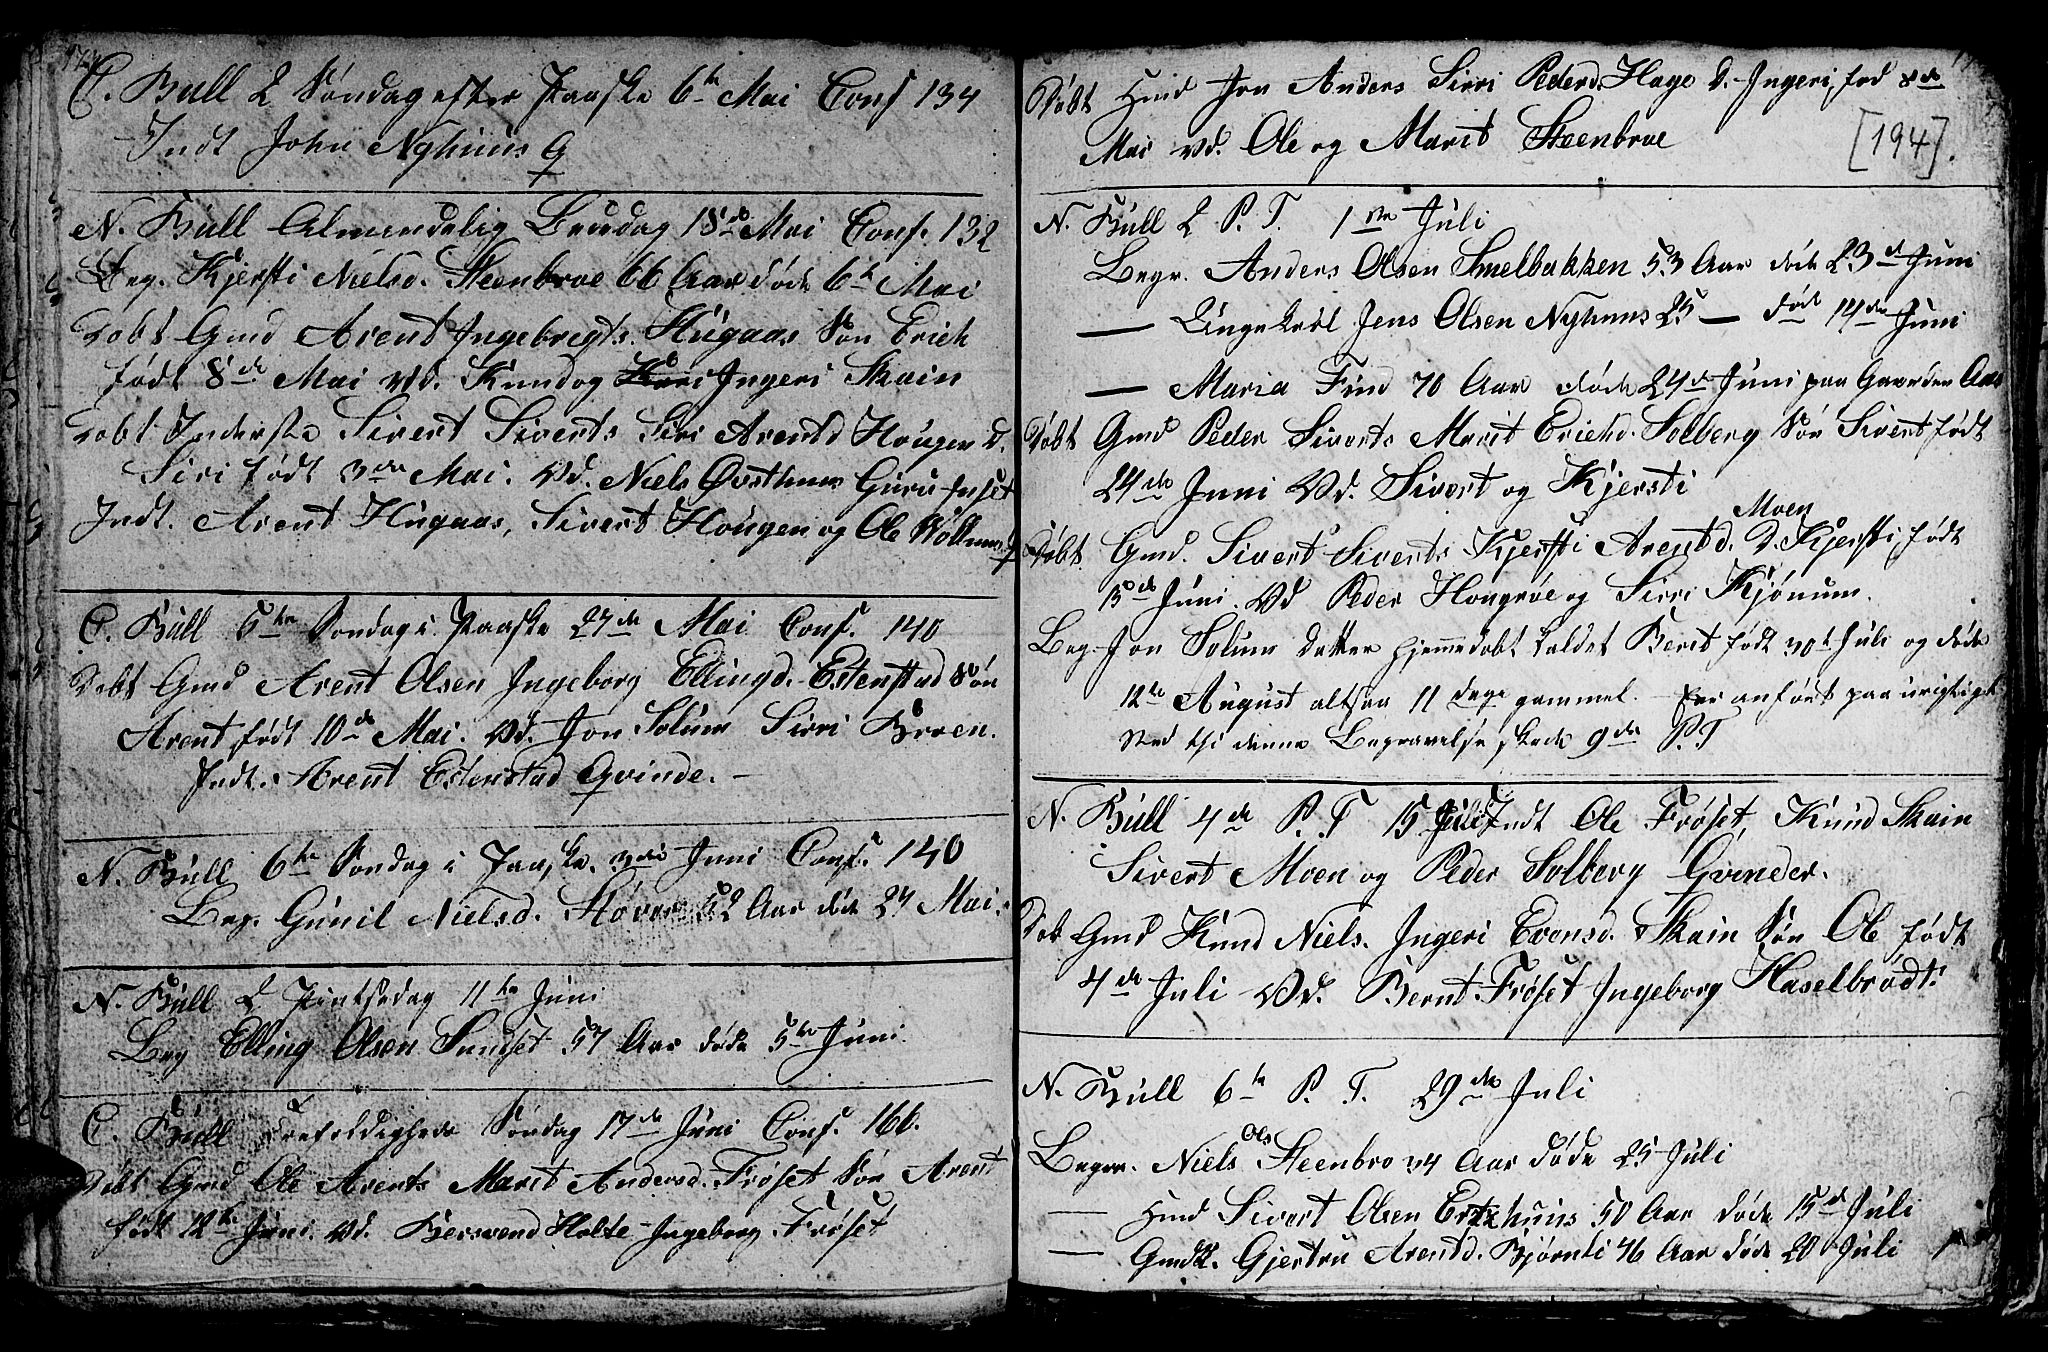 C. Bull 2 Søndag efter Paaske 6te Mai Conf 134
Indt John Nyhuus Q
N. Bull Almendelig Beededag 18de Mai Conf. 132
Beg. Kjersti Nielsd. Steenbroe 66 Aar døde 6te Mai
Døbt Gmd Arent Ingebregts. Hugaas Søn Erich
født 8de Mai Vd. Knud og Ingeri Skain
Døbt Inderste Sivert Siverts Siri Arentd Hougen D.
Siri født 3die Mai. Vd. Niels Østhuus Guru Inset
Indt. Arent Hugaas, Sivert Hougen og Ole Q
C. Bull 5te Søndag i Paaske 27de Mai Conf. 140
Døbt Gmd Arent Olsen Ingeborg Ellingd. Estenstad Søn
Arent født 10de Mai. Vd. Jon Solum Sirri Broen.
Indt. Arent Estenstad Qvinde. -
N. Bull 6te Søndag i Paaske. 3die Juni Conf. 140
Beg. Gunil Nielsd. 52 Aar døde 27 Mai.
N. Bull 2 Pintsedag 11te Juni
Beg Elling Olsen Sundset 57 Aar døde 5te Juni
C. Bull Trefoldigheds Søndag 17de Juni Conf. 166.
Døbt Gmd Ole Arents Marit Andersd. Frøset Søn Arent
født 12te Juni. Vd. Bersvend Holte Ingeborg Frøset
Døbt Hmd Jon Anders Sirri Pedersd. Hage D. Ingeri, fød 8de
Mai Vd. Ole og Marit Steenbroe
[194].
N. Bull 2 P. T. 1ste Juli
Begr. Anders Olsen Smelbakken 53 Aar døde 23de Juni
— Ungekarl Jens Olsen Nyhuus 25 — død 14de Juni
— Maria Find 70 Aar døde 24de Juni paa Gaarden Aas
Døbt Gmd Peder Siverts Marit Erichd. Solberg Søn Sivert født
24de Juni Vd. Sivert og Kjersti
Moen
Døbt Gmd. Sivert Siverts Kjersti Arentd. D. Kjersti, født
15de Juni. Vd Peder Hongrøe og Sirri Kjønum.
Beg. Jon Solum Datter hjemmedøbt kaldet Berit født 30te Juli og døde
12te August altsaa 11 Dage gammel. - Er anført paa urigtigt
Sted thi denne Begravelse skede 9de P.T
N. Bull 4de P. T 15 Juli Indt Ole Frøset, Knud Skain
Sivert Moen og Peder Solberg Qvinder.
Døb Gmd Knud Niels. Ingeri Evensd. Skain Søn Ole født
4de Juli Vd. Bernt Frøset Ingeborg Haselbrødt.
N. Bull 6te P. T. 29de Juli
Ols
Begr. Niels Steenbro 34 Aar døde 25 Juli
— Hmd Sivert Olsen 50 Aar døde 15de Juli
— Gmdk. Gjertru Arentd. Bjørnli 46 Aar døde 20 Juli